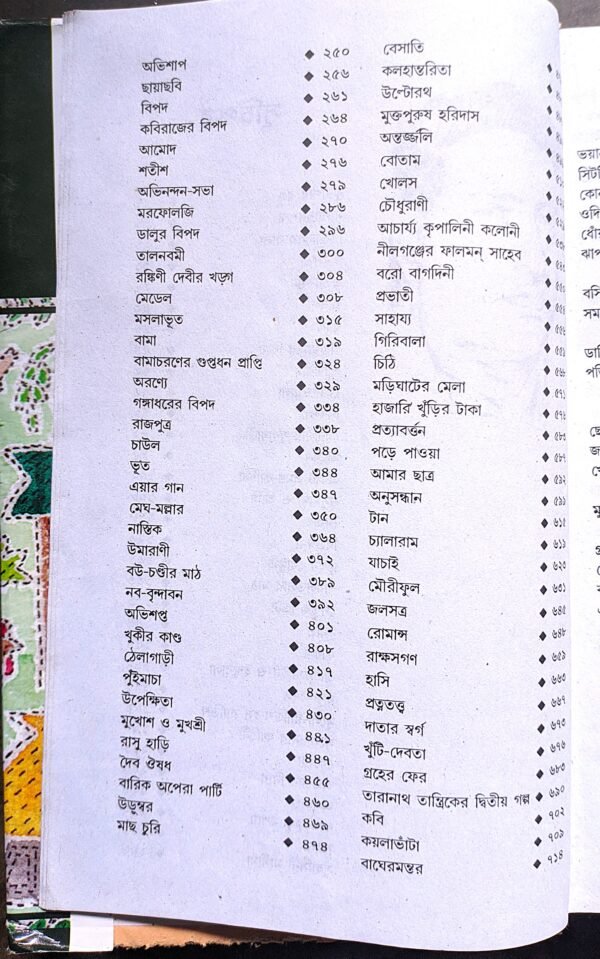 অভিশাপ ◆ ২৫০
ছায়াছবি ◆ ২৫৬
বিপদ ◆ ২৬১
কবিরাজের বিপদ ◆ ২৬৪
আমোদ ◆ ২৭০
শতীশ ◆ ২৭৬
অভিনন্দন-সভা ◆ ২৭৯
মরফোলজি ◆ ২৮৬
ডালুর বিপদ ◆ ২৯৬
তালনবমী ◆ ৩০০
রঙ্কিণী দেবীর খড়্গ ◆ ৩০৪
মেডেল ◆ ৩০৮
মসলাভূত ◆ ৩১৫
বামা ◆ ৩১৯
বামাচরণের গুপ্তধন প্রাপ্তি ◆ ৩২৪
অরণ্যে ◆ ৩২৯
গঙ্গাধরের বিপদ ◆ ৩৩৪
রাজপুত্র ◆ ৩৩৮
চাউল ◆ ৩৪০
ভূত ◆ ৩৪৪
এয়ার গান ◆ ৩৪৭
মেঘ-মল্লার ◆ ৩৫০
নাস্তিক ◆ ৩৬৪
উমারাণী ◆ ৩৭২
বউ-চণ্ডীর মাঠ ◆ ৩৮৯
নব-বৃন্দাবন ◆ ৩৯২
অভিশপ্ত ◆ ৪০১
খুকীর কাণ্ড ◆ ৪০৮
ঠেলাগাড়ী ◆ ৪১৭
পুঁইমাচা ◆ ৪২১
উপেক্ষিতা ◆ ৪৩০
মুখোশ ও মুখশ্রী ◆ ৪৪১
রাসু হাড়ি ◆ ৪৪৭
দৈব ঔষধ ◆ ৪৫৫
বারিক অপেরা পার্টি ◆ ৪৬০
উডুম্বর ◆ ৪৬৯
মাছ চুরি ◆ ৪৭৪
বেসাতি
কলহান্তরিতা
উল্টোরথ
মুক্তপুরুষ হরিদাস
অন্তর্জ্জলি
বোতাম
খোলস
চৌধুরাণী
আচার্য্য কৃপালিনী কলোনী
নীলগঞ্জের ফালমন্ সাহেব
বরো বাগদিনী
প্রভাতী
সাহায্য
গিরিবালা
চিঠি ◆ ৫৬৮
মড়িঘাটের মেলা ◆ ৫৭১
হাজারি খুঁড়ির টাকা ◆ ৫৭৬
প্রত্যাবর্ত্তন ◆ ৫৮৩
পড়ে পাওয়া ◆ ৫৮৭
আমার ছাত্র ◆ ৫৯২
অনুসন্ধান ◆ ৫৯৯
টান ◆ ৬১৫
চ্যালারাম ◆ ৬১৯
যাচাই ◆ ৬২৩
মৌরীফুল ◆ ৬৩১
জলসত্র ◆ ৬৪৫
রোমান্স ◆ ৬৪৮
রাক্ষসগণ ◆ ৬৫৯
হাসি ◆ ৬৬৩
প্রত্নতত্ত্ব ◆ ৬৬৭
দাতার স্বর্গ ◆ ৬৭৩
খুঁটি-দেবতা ◆ ৬৭৬
গ্রহের ফের ◆ ৬৮৩
তারানাথ তান্ত্রিকের দ্বিতীয় গল্প ◆ ৬৯০
কবি ◆ ৭০২
কয়লাভাঁটা ◆ ৭০৯
বাঘেরমন্তর ◆ ৭১৪